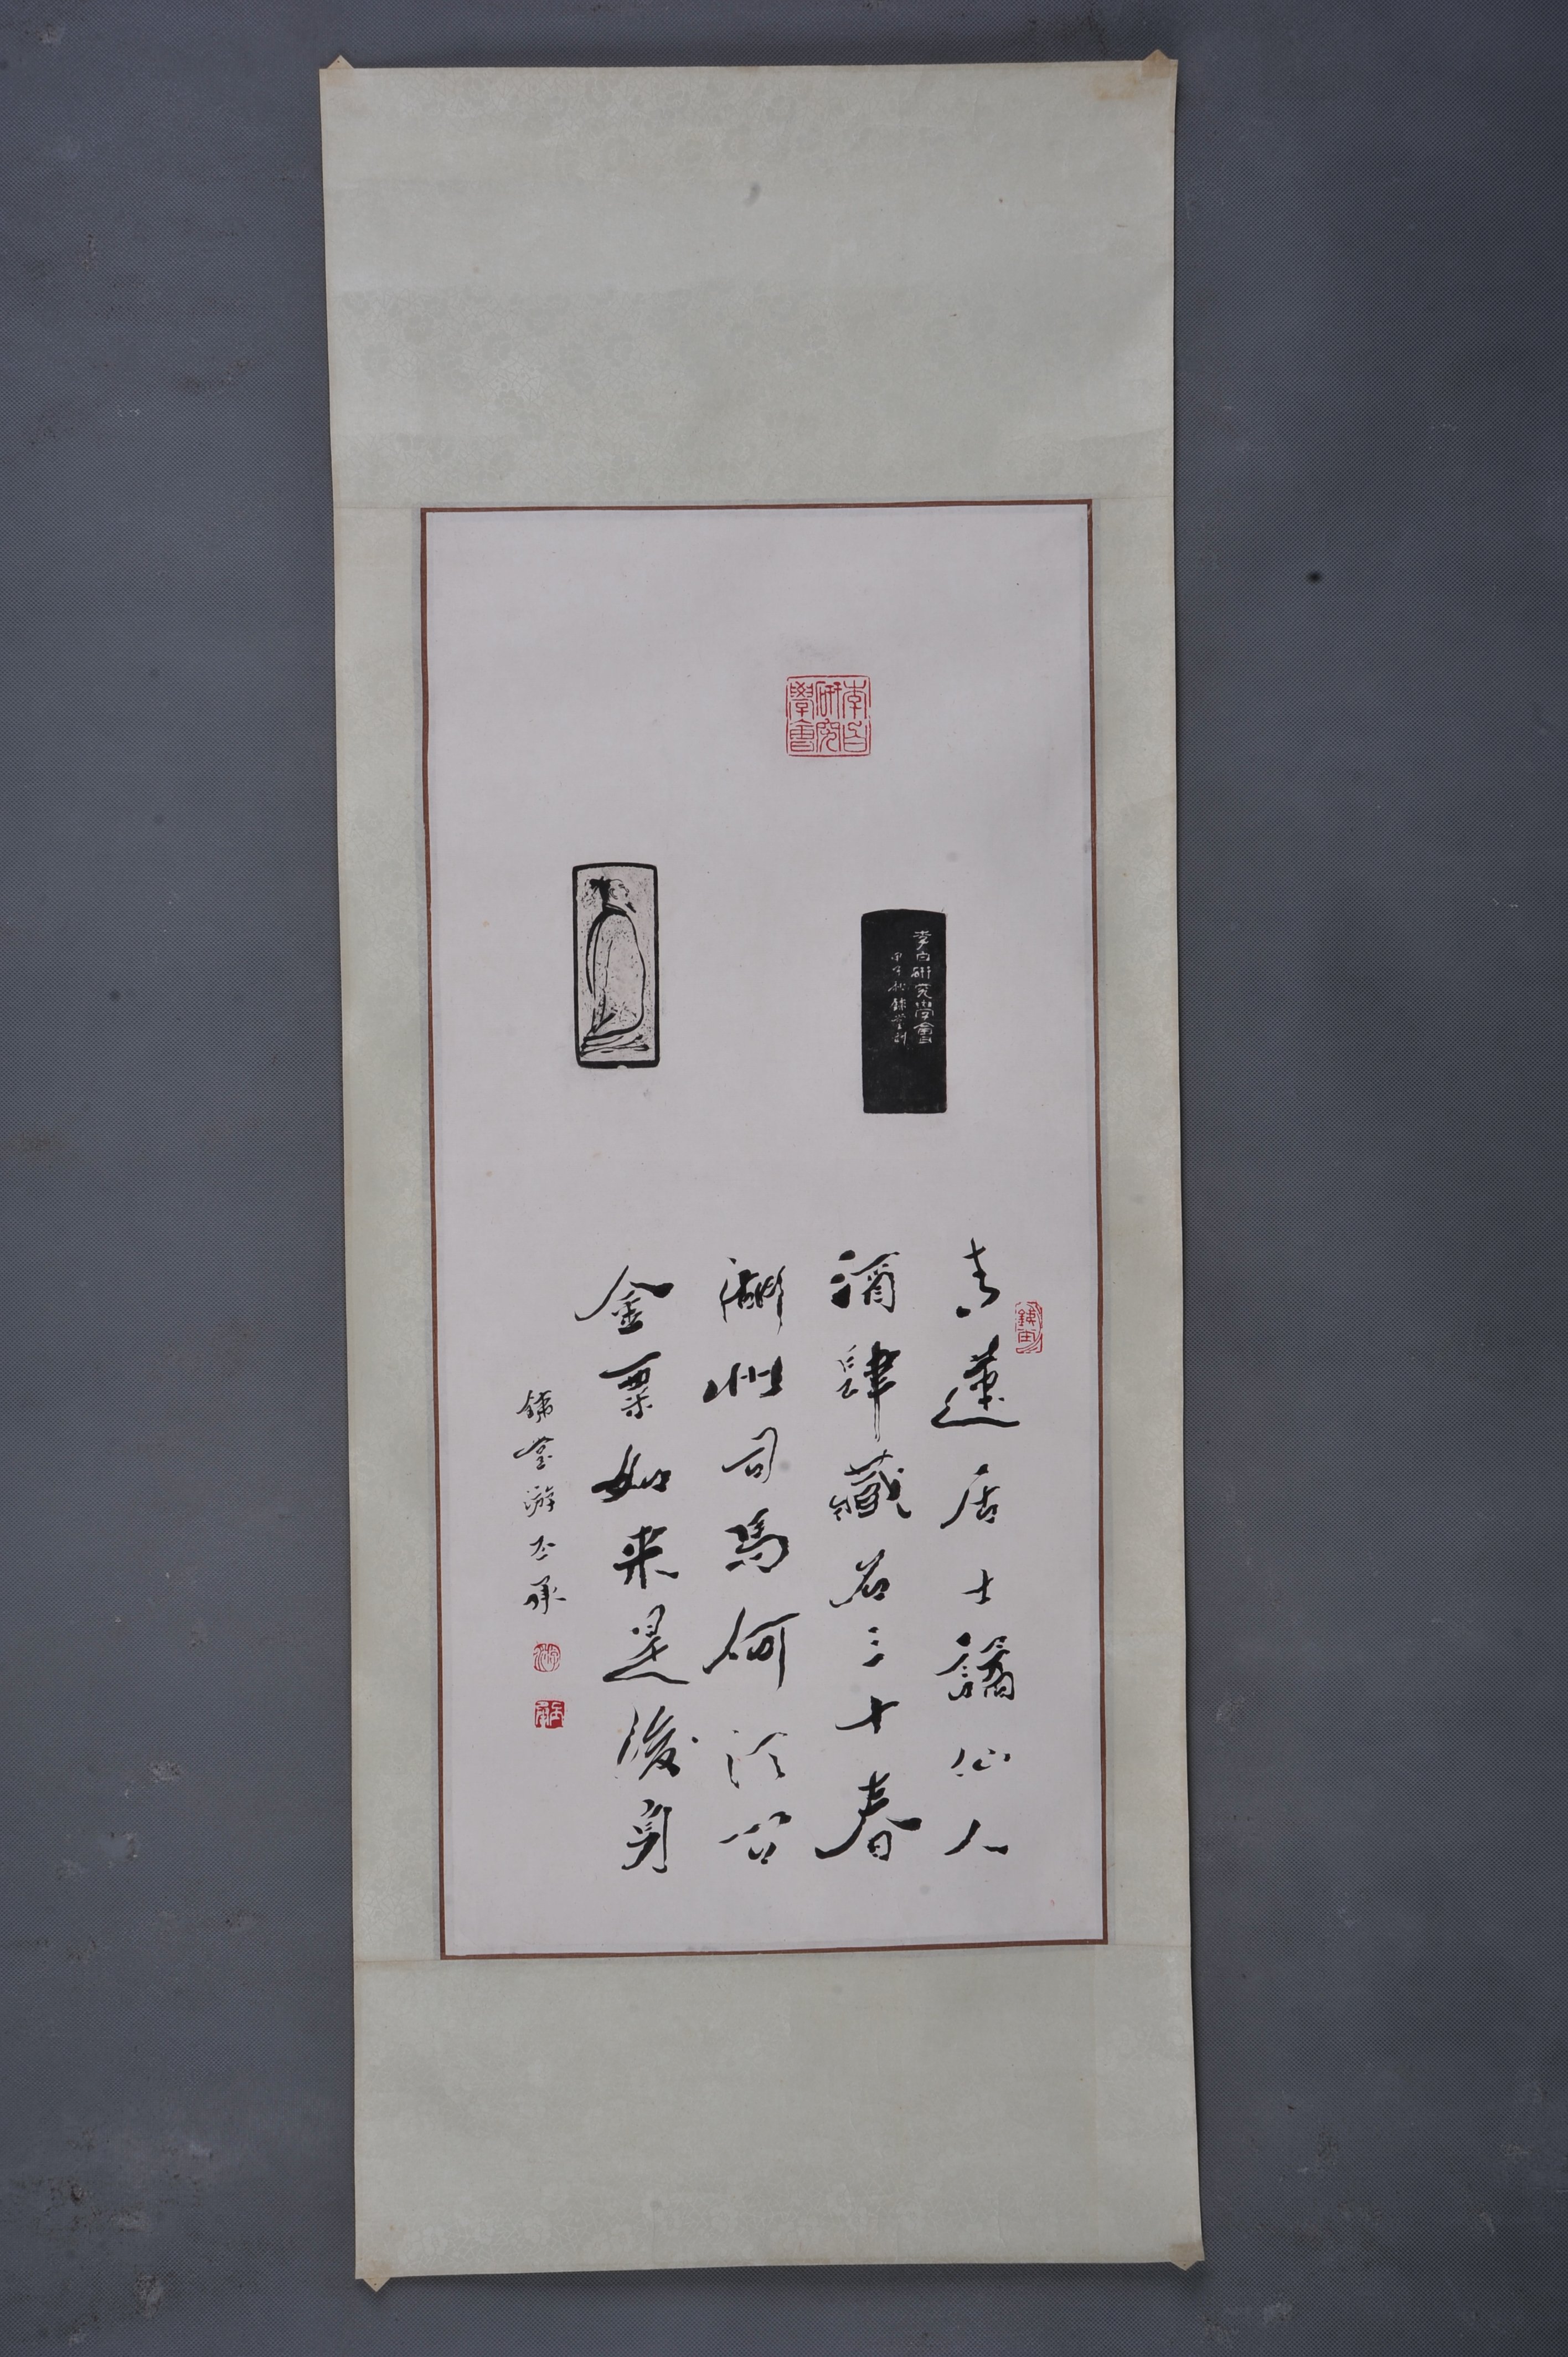 李白研究學會
李白研究學會
甲子秋
青蓮居士謫仙人
酒肆藏名三十春
湖州司馬何須問
金粟如来是後身
游丕承